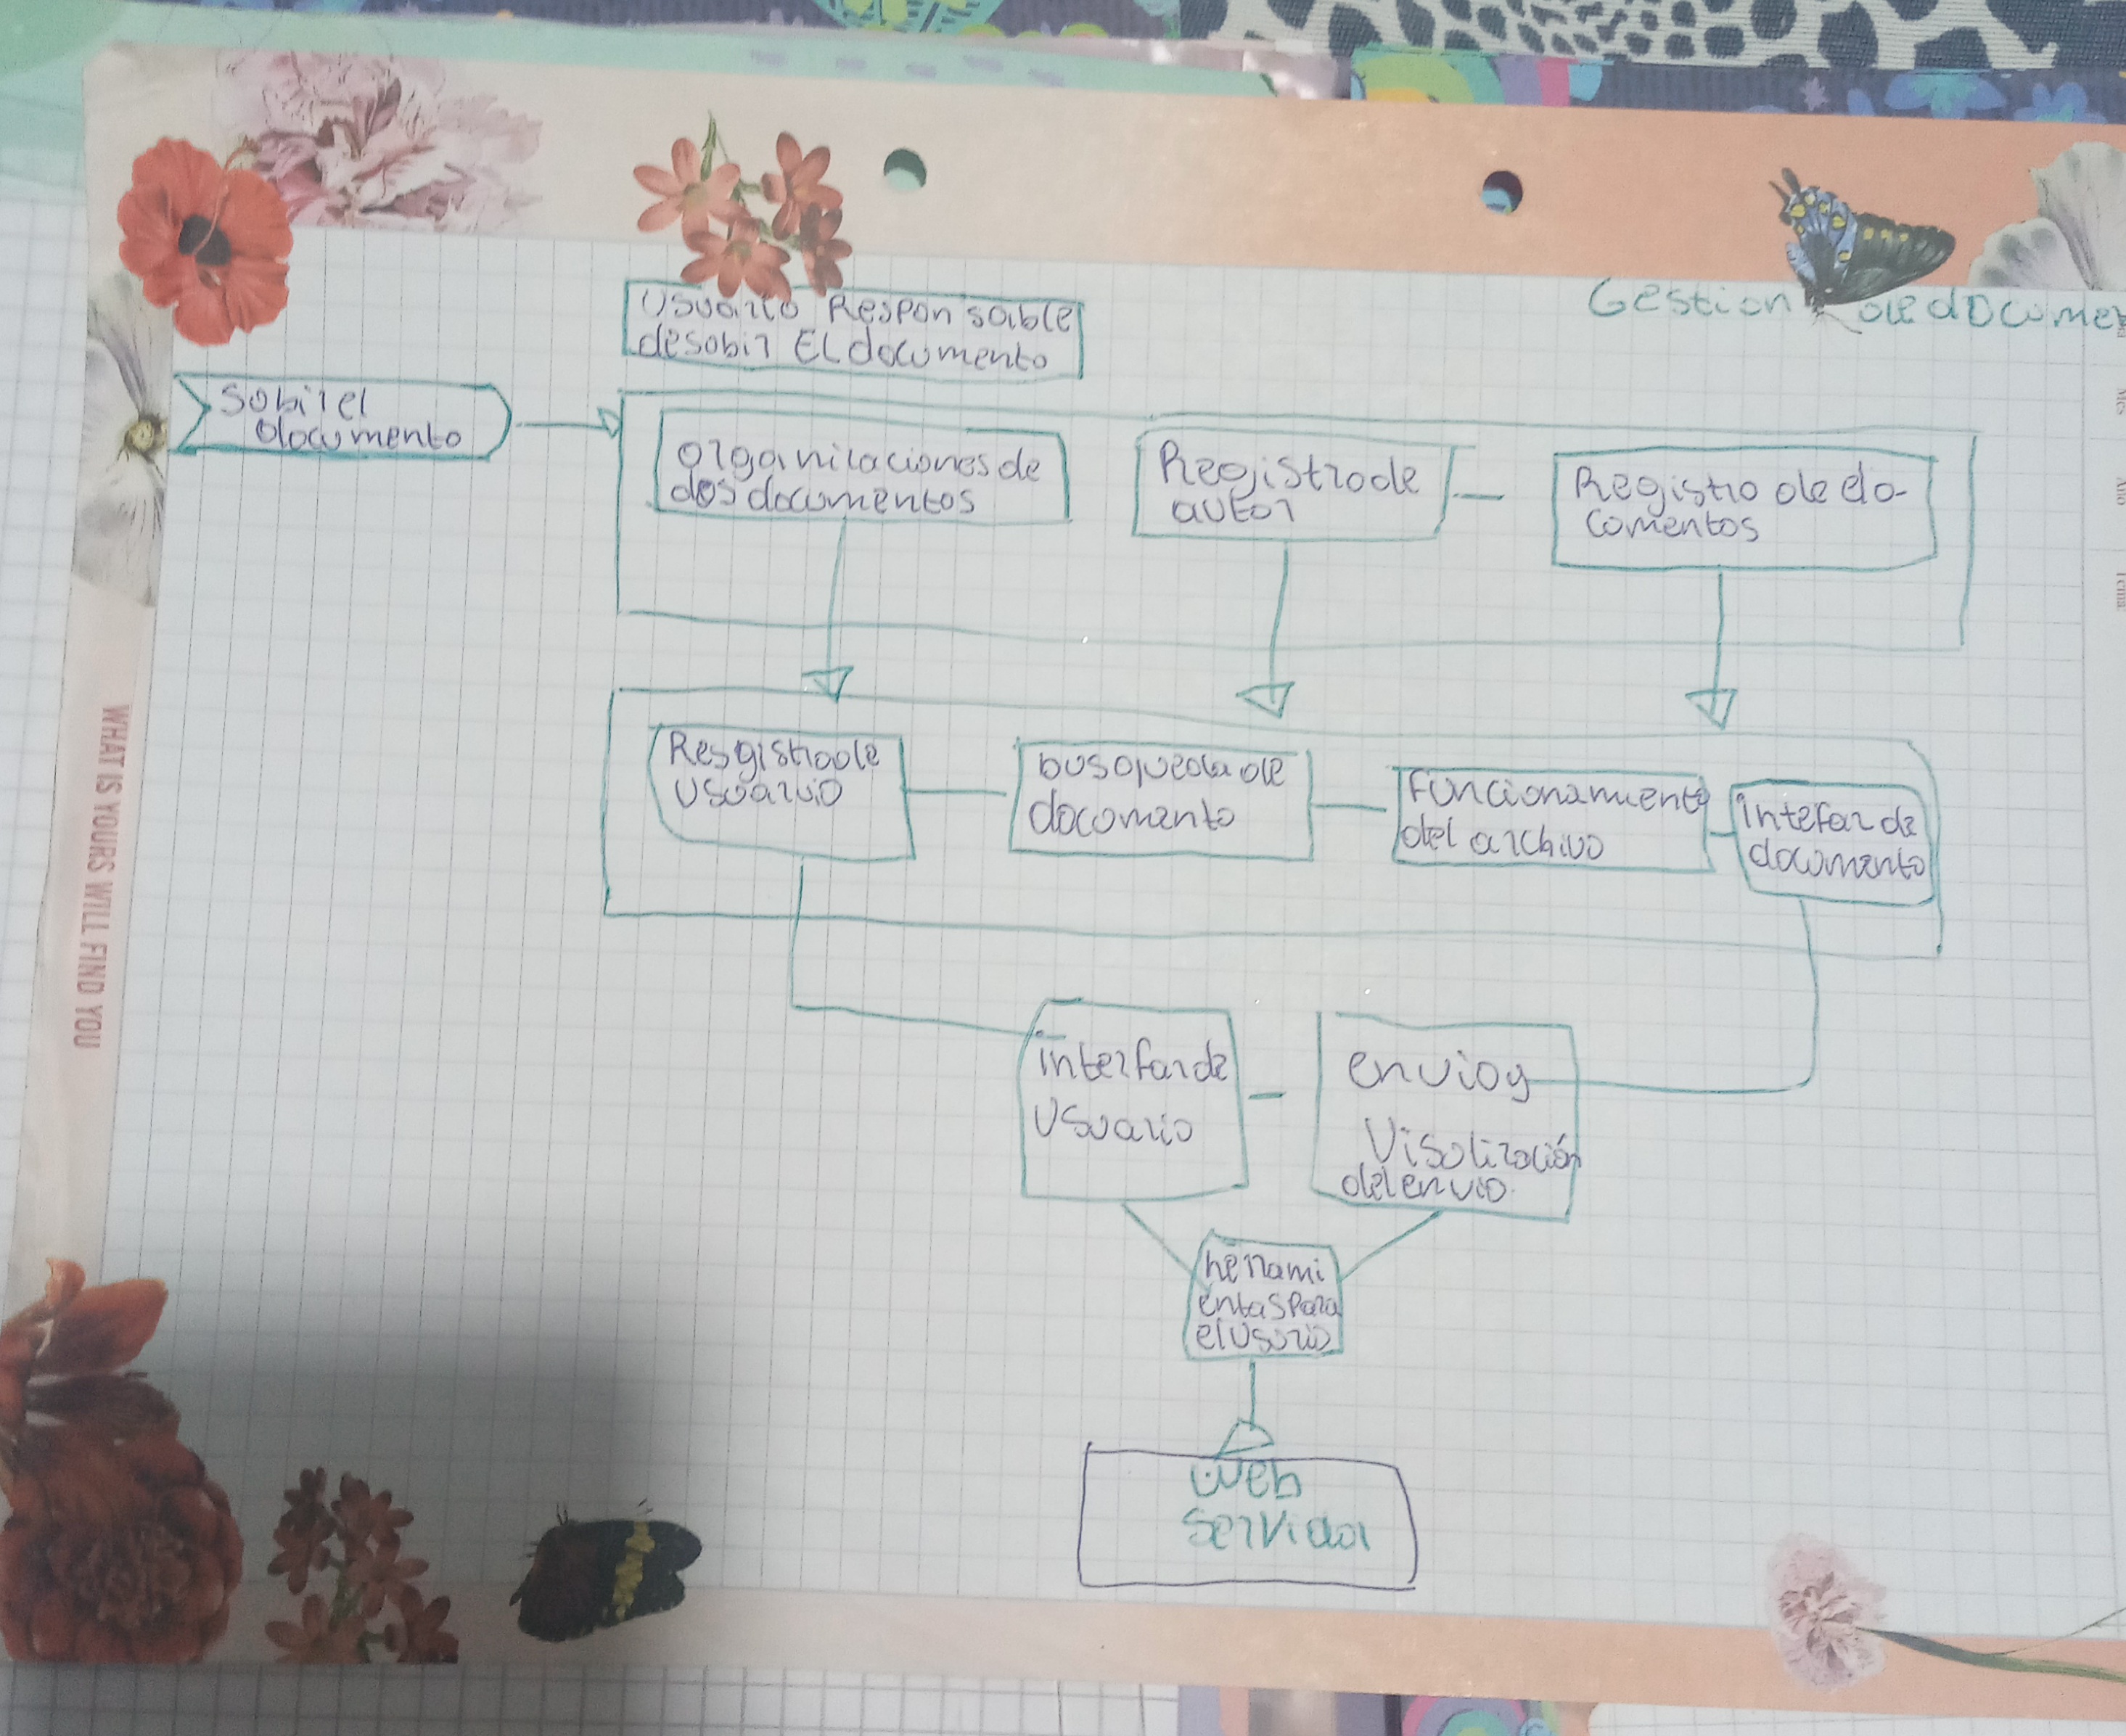 Gestion de documen
Usuario Responsable
desobir El documento
Sobir el
documento
organilaciones de
dos documentos
Registro de
autor
Registro de do-
comentos
Resgistro de
usuario
busqueda de
documento
Funcionamiento
del archivo
Intefaz de
documento
interfaz de
usuario
envio y
Visolización
del envio.
herrami
entas para
el usorio
web
servidor
WHAT IS YOURS WILL FIND YOU
Mes
Año
Tema: